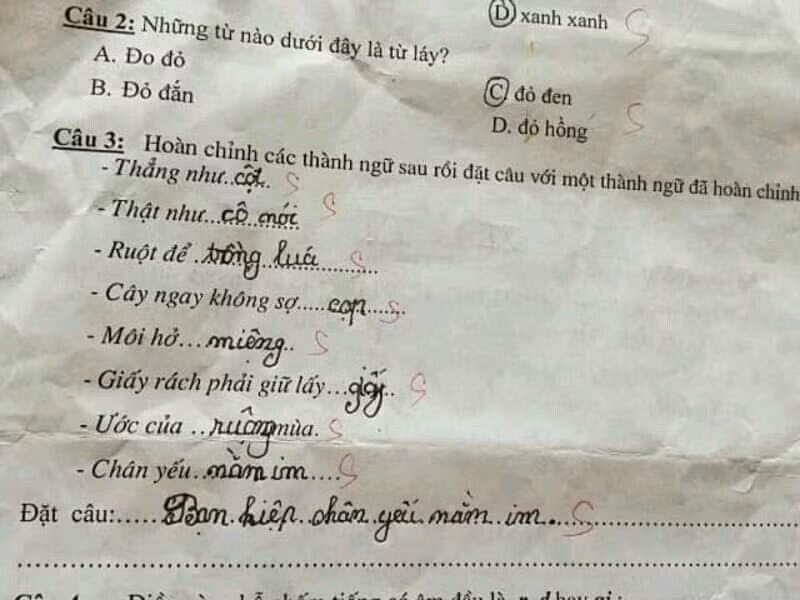 D xanh xanh S
Câu 2: Những từ nào dưới đây là từ láy?
A. Đo đỏ
B. Đỏ đắn
C đỏ đen S
D. đỏ hồng
Câu 3: Hoàn chỉnh các thành ngữ sau rồi đặt câu với một thành ngữ đã hoàn chỉnh
- Thẳng như..cột.. S
- Thật như...cô nói S
- Ruột để ..trồng luá...... S
- Cây ngay không sợ.....cọp...... S
- Môi hở...miệng.. S
- Giấy rách phải giữ lấy...giấy.. S
- Ước của ..ruộng mùa. S
- Chân yếu..nằm im.... S
Đặt câu:.....Bạn hiệp chân yếu nằm im. S